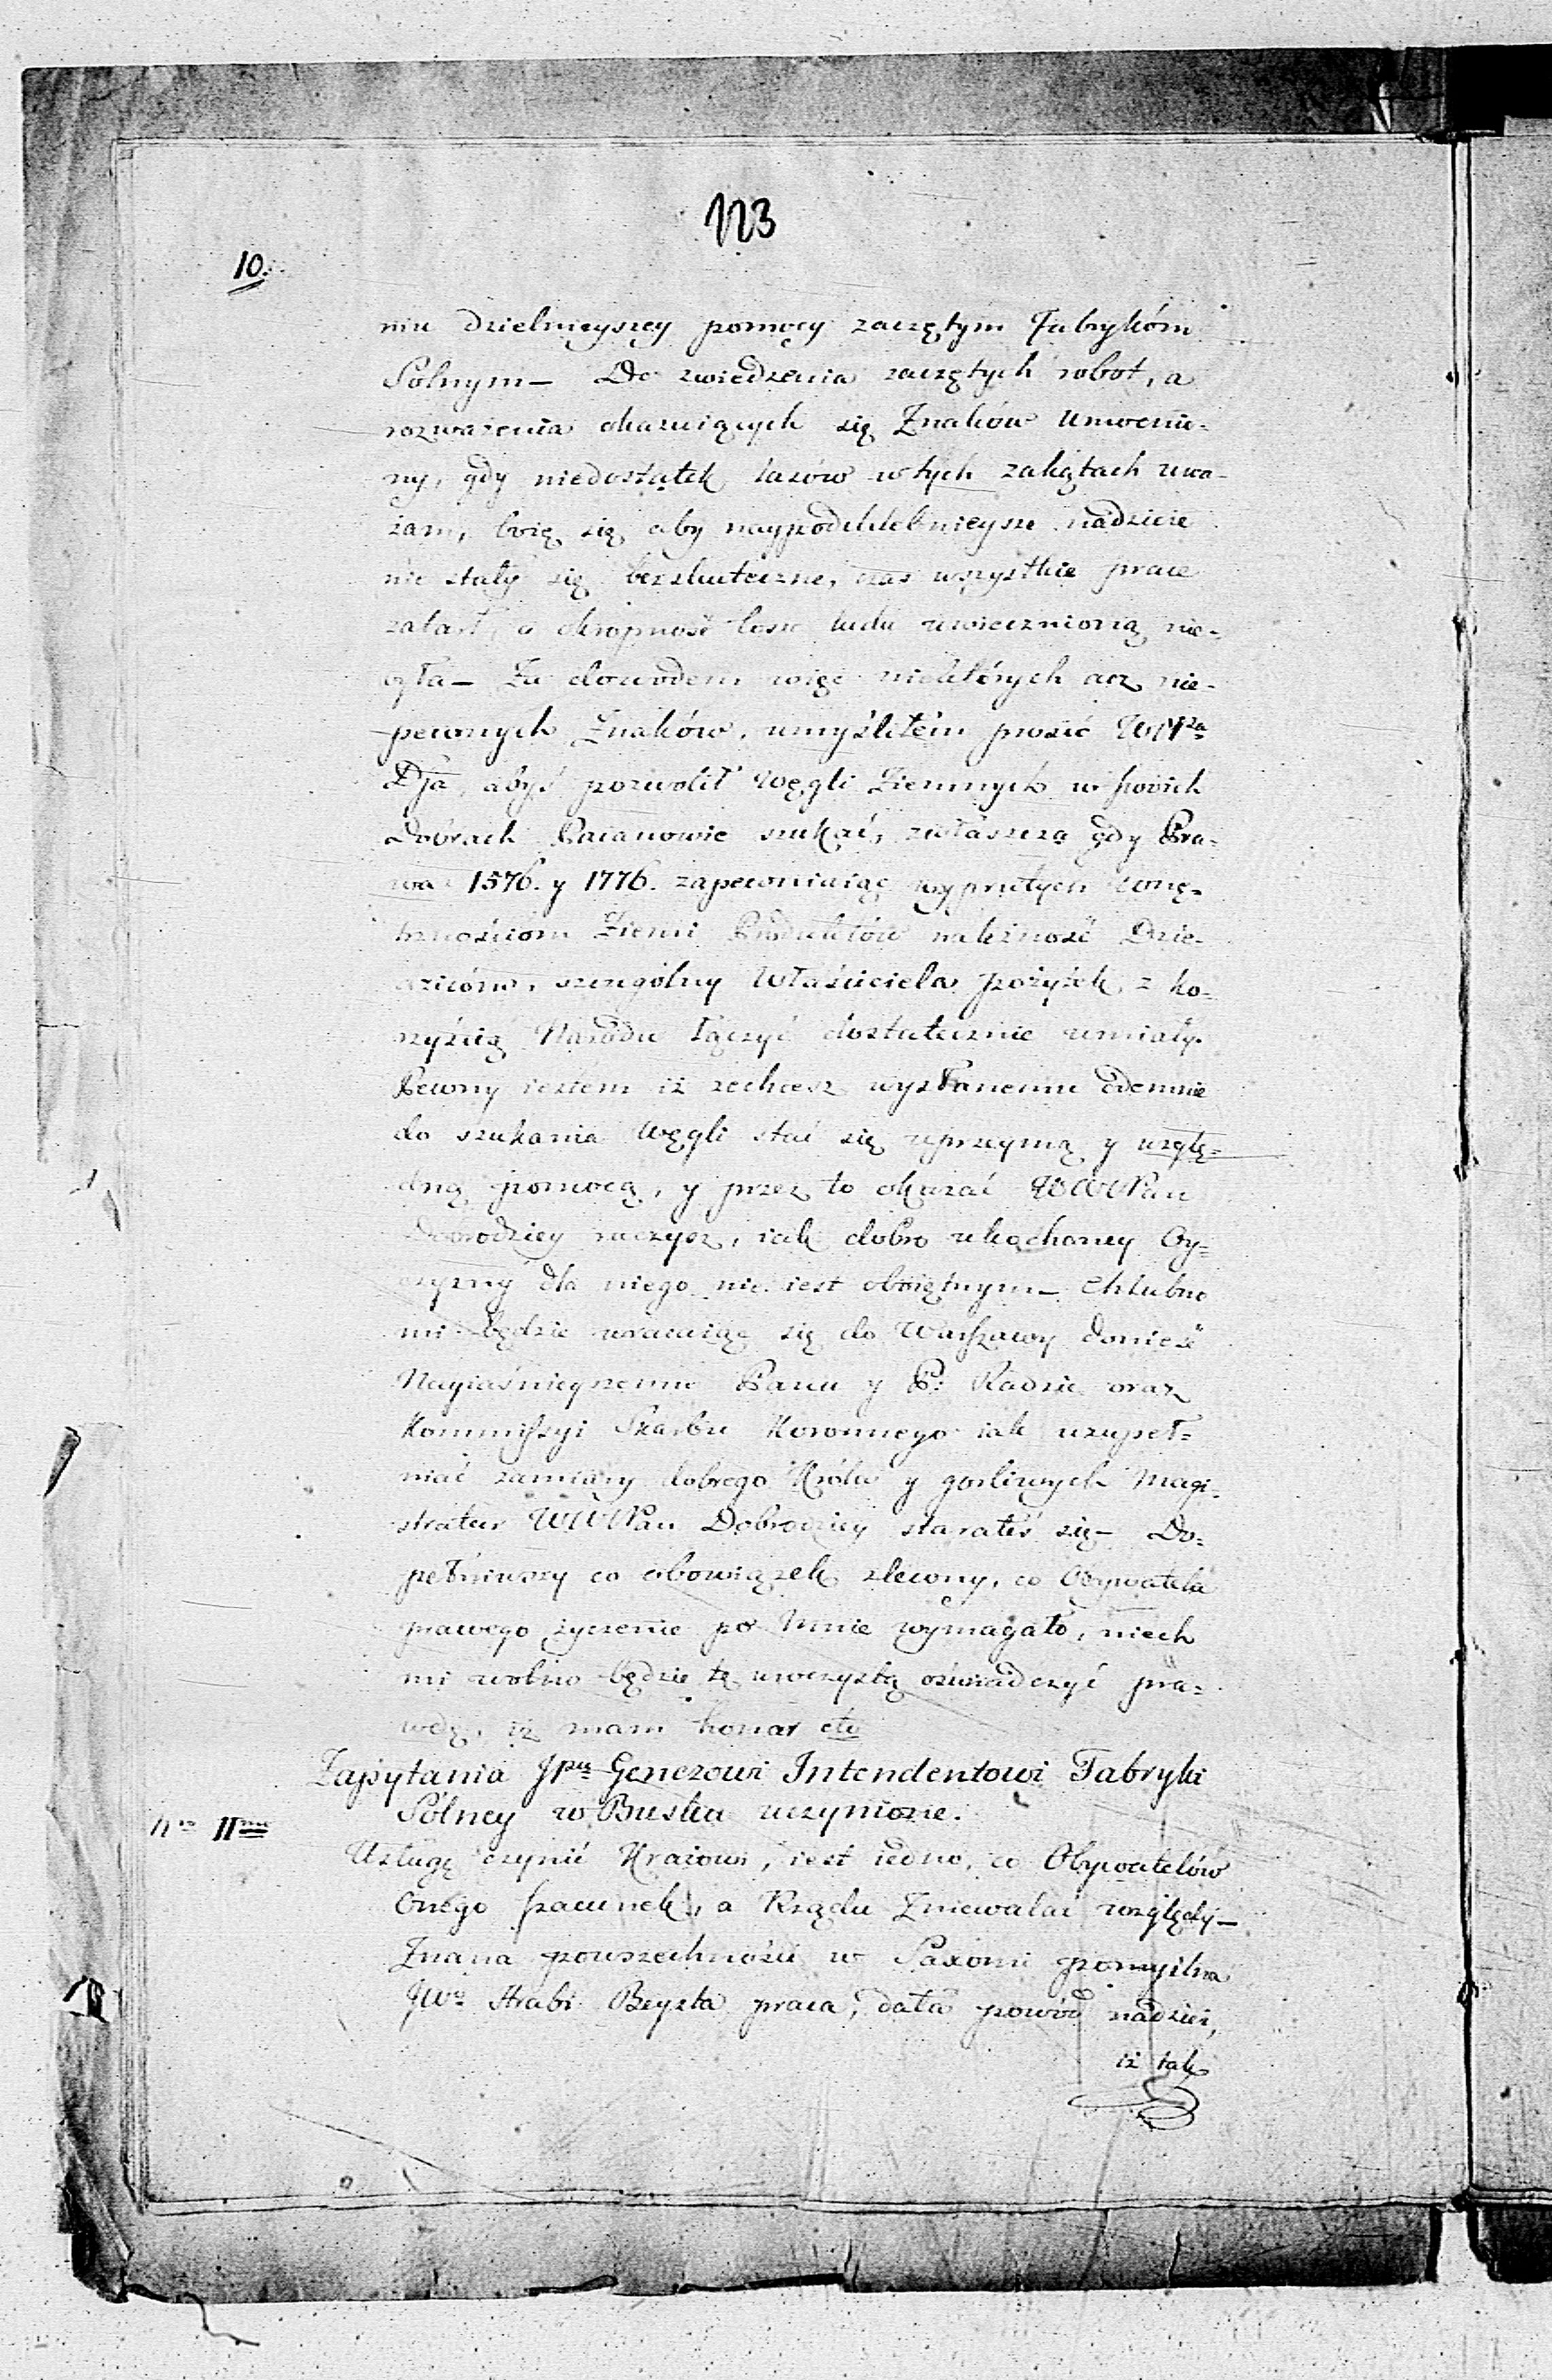 113
10.
niu dzielnieyszey pomocy zaczętym Fabrykóm
Solnym— Do zwiedzenia zaczętych robot, a
rozwarzenia okazuiących się Znaków umocnio-
ny, gdy niedostatek lasów w tych zakątach uwa-
żam, boię się aby naypodchlebnieysze nadzieie
nie stały się bezskuteczne, czas wszystkie prace
zatarł, a okropność losu ludu uwieczniona nie-
Za dowodem więc niektórych acz nie-
pewnych Znaków, umyśliłem prosić WMPa
Dja, abyś pozwolił węgli Ziemnych w swoich
Dobrach Pacanowie szukać, zwłaszcza gdy Pra-
wa 1576. y 1776. zapewniaiąc wyprutych wnę-
trznościom Ziemi Produktów należność Dzie-
dziców, szczególny właściciela pożytek, z ko-
rzyścią Narodu łączyć dostatecznie umiały.
Pewny iestem iż zechcesz wysłanemu odemnie
do szukania węgli stać się uprzeymą y wzglę-
dną pomocą, y przez to okazać WWPan
Dobrodziey raczysz, iak dobro ukochaney Oy-
czyzny dla niego nie iest oboiętnym— Chlubno
mi będzie wracaiąc się do Warszawy donieść
Nayiaśnieyszemu Panu y P: Radzie oraz
Kommissyi Skarbu Koronnego iak uzupeł-
niać zamiary dobrego Króla y gorliwych Magi-
stratur WWPan Dobrodziey starałeś się— Do-
pełniwszy co obowiązek zlecony, co Obywatela
prawego życzenie po mnie wymagało, niech
mi wolno będzie tę uroczystą oświadczyć pra-
wdę, iż mam honor etc
Zapytania JPu Genczowi Intendentowi Fabryki
Solney w Busku uczynione.
Nro IImo
Usługę czynić Kraiowi, iest iedno, co Obywatelów
Onego szacunek, a Rządu Zniewalać względy—
Znana powszechności w Saxonii pomyślna
JWo Hrabi Beyszta praca, dała powód nadziei,
iż iak